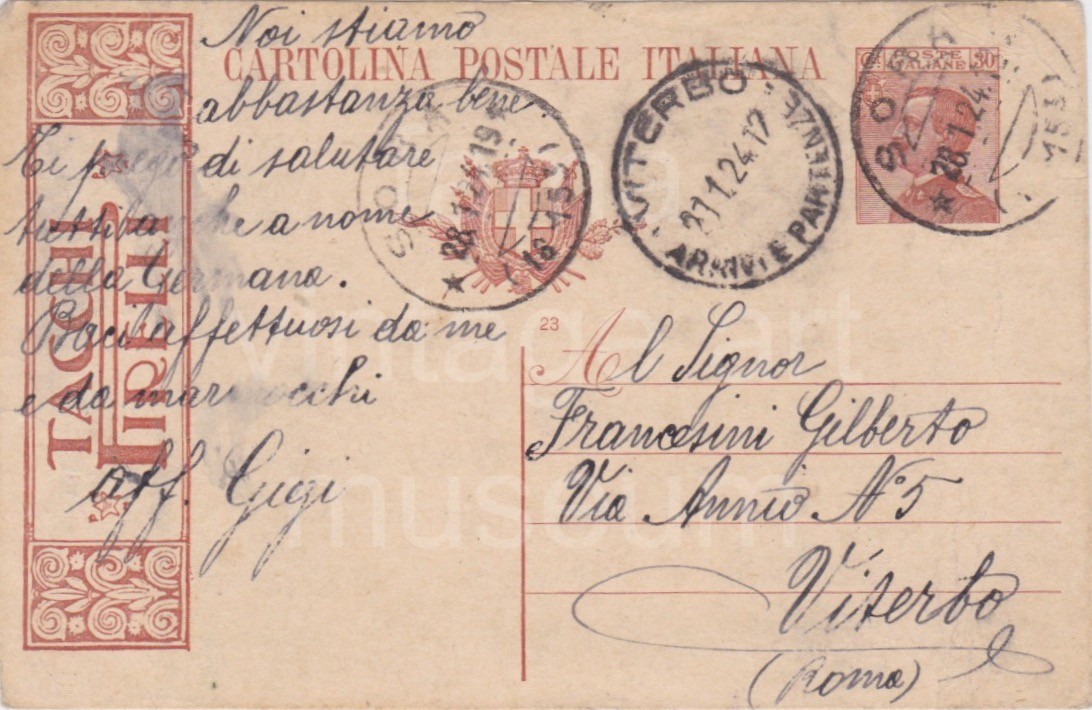 Noi stiamo
CARTOLINA POSTALE ITALIANA
abbastanza bene.
Ti prego di salutare
tutti anche a nome
della Germana.
Baci affettuosi da me
e da
aff. Gigi
TACCHI
PIRELLI
SORA
28.1.24.19
VITERBO
21.1.24.17
ARRIVI E PARTENZE
POSTE
ITALIANE
Ct. 30
SORA
28.1.24
23
Al Signor
Francesini Gilberto
Via Annio N° 5
Viterbo
(Roma)
vintage art
museum